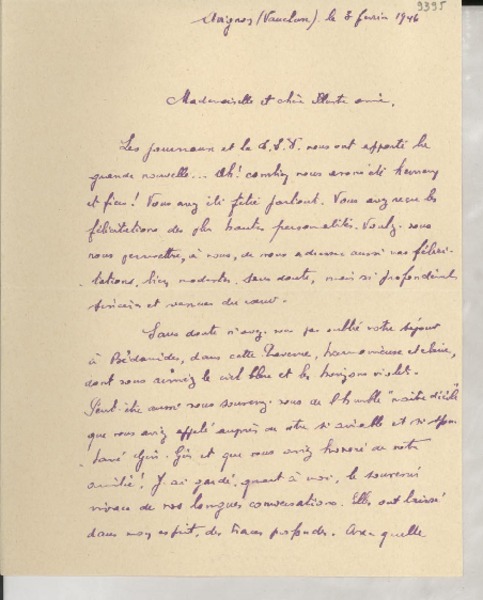 9395
(Vaucluse). le 3 février 1946
Mademoiselle et chère illustre amie,
Les journaux et la T.S.F. nous ont apporté la
grande nouvelle... Oh! combien nous avons été heureux
et fiers! Vous avez été fêtée partout. Vous avez reçu les
félicitations des plus hautes personnalités. Voulez-vous
nous permettre, à nous, de vous adresser aussi nos félici-
tations, bien modestes, sans doute, mais si profondément
sincères et venues du cœur.
Sans doute n'avez-vous pas oublié votre séjour
à Bédarrides, dans cette Provence, harmonieuse et claire,
dont vous aimiez le ciel bleu et les horizons violets.
Peut-être aussi vous souvenez-vous de l'humble "maître d'école"
que vous aviez appelé auprès de votre si aimable et si
et que vous aviez honoré de votre
amitié! J'ai gardé, quant à moi, le souvenir
vivace de nos longues conversations. Elles ont laissé
dans mon esprit, des traces profondes. Avec quelle